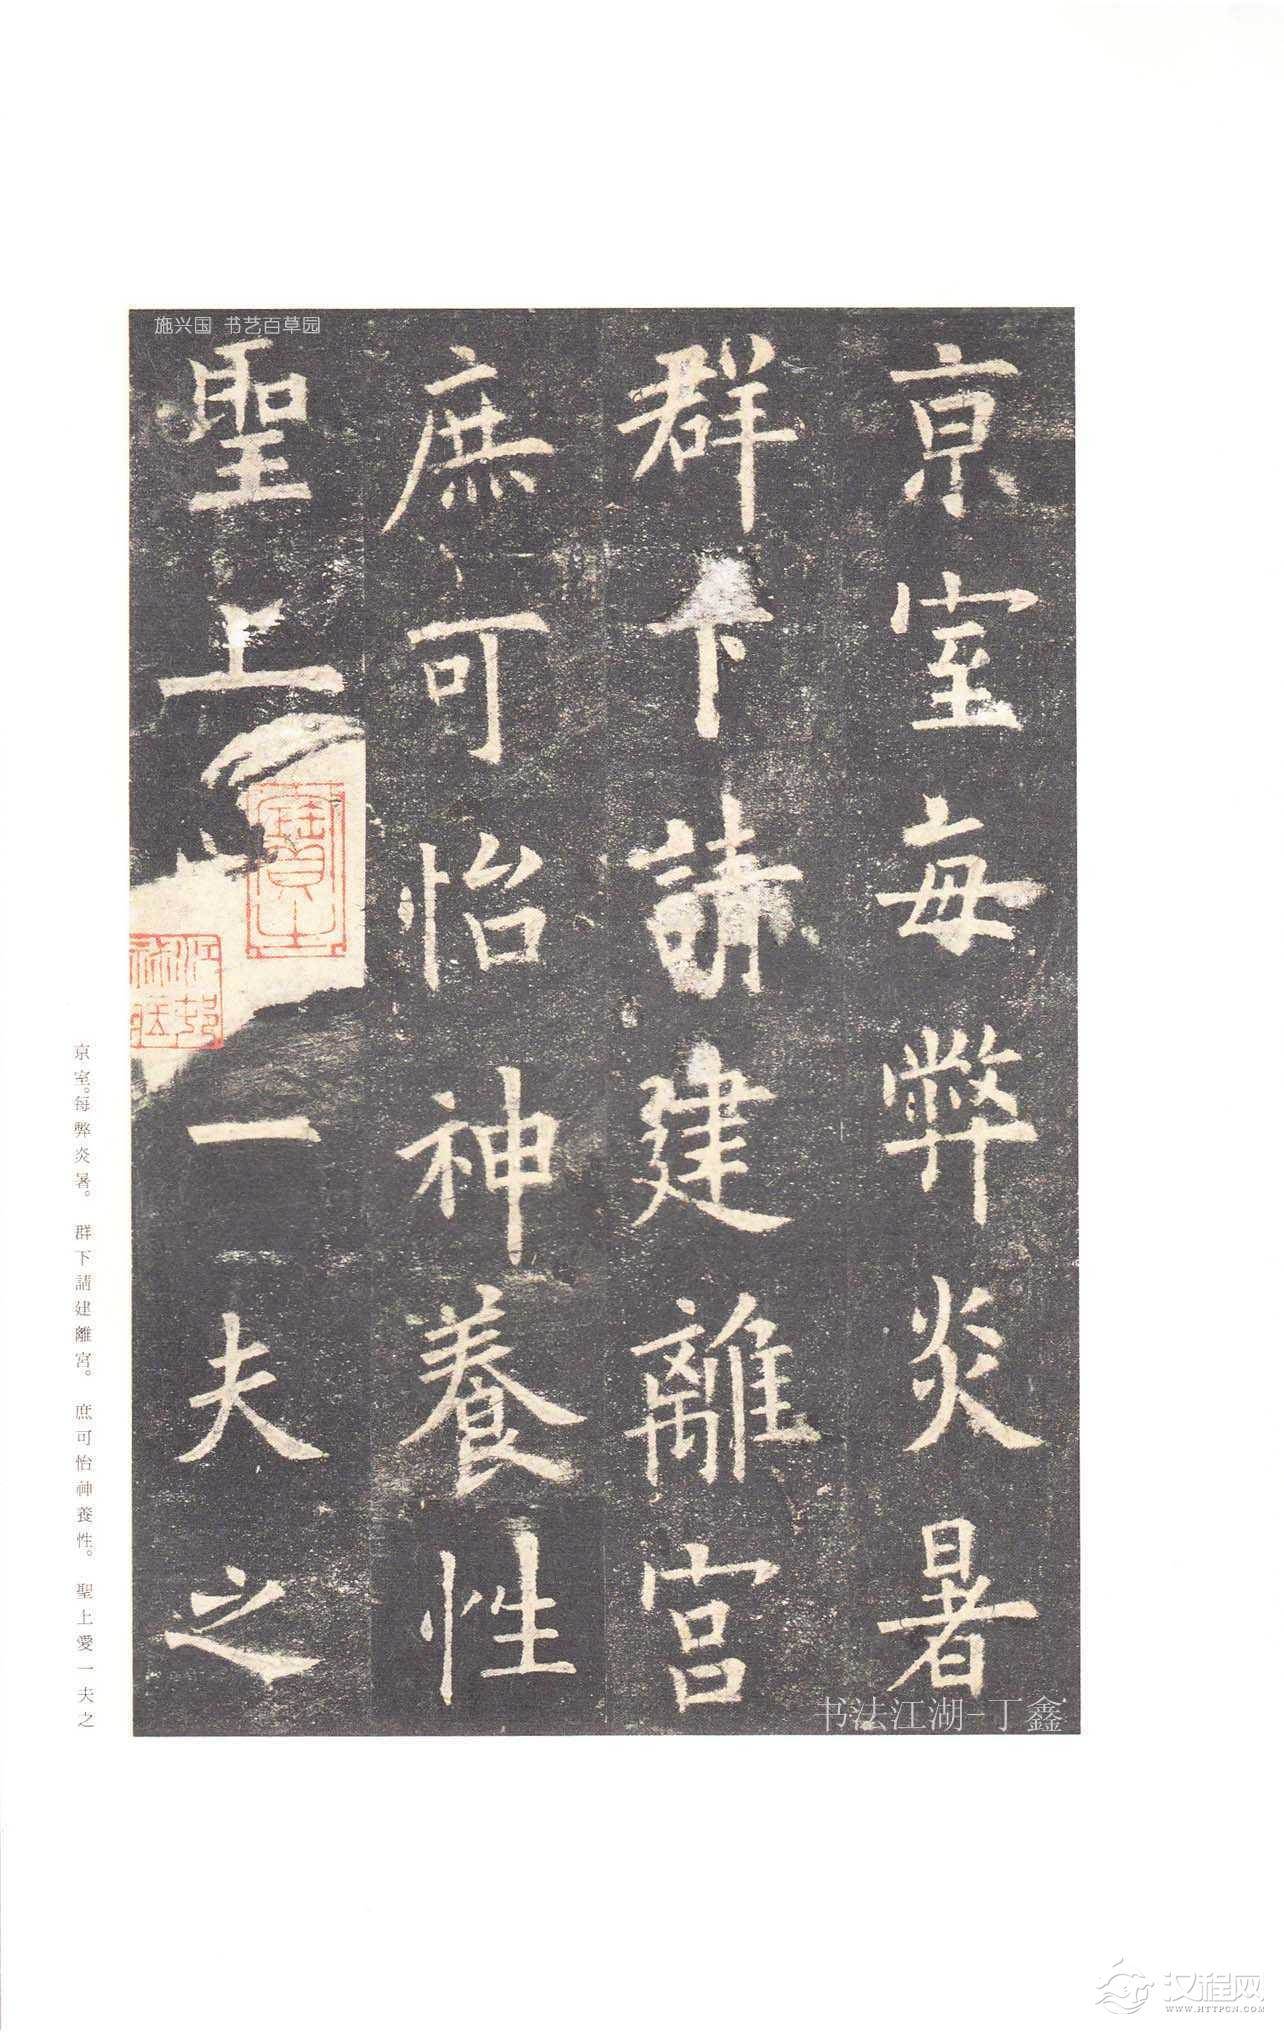 施兴国 书艺百草园
京室每弊炎暑
群下請建離宮
庶可怡神養性
聖上一夫之
京室。每弊炎暑。 群下請建離宮。 庶可怡神養性。 聖上愛一夫之
书法江湖-丁鑫
汉程网
WWW.HTTPCN.COM